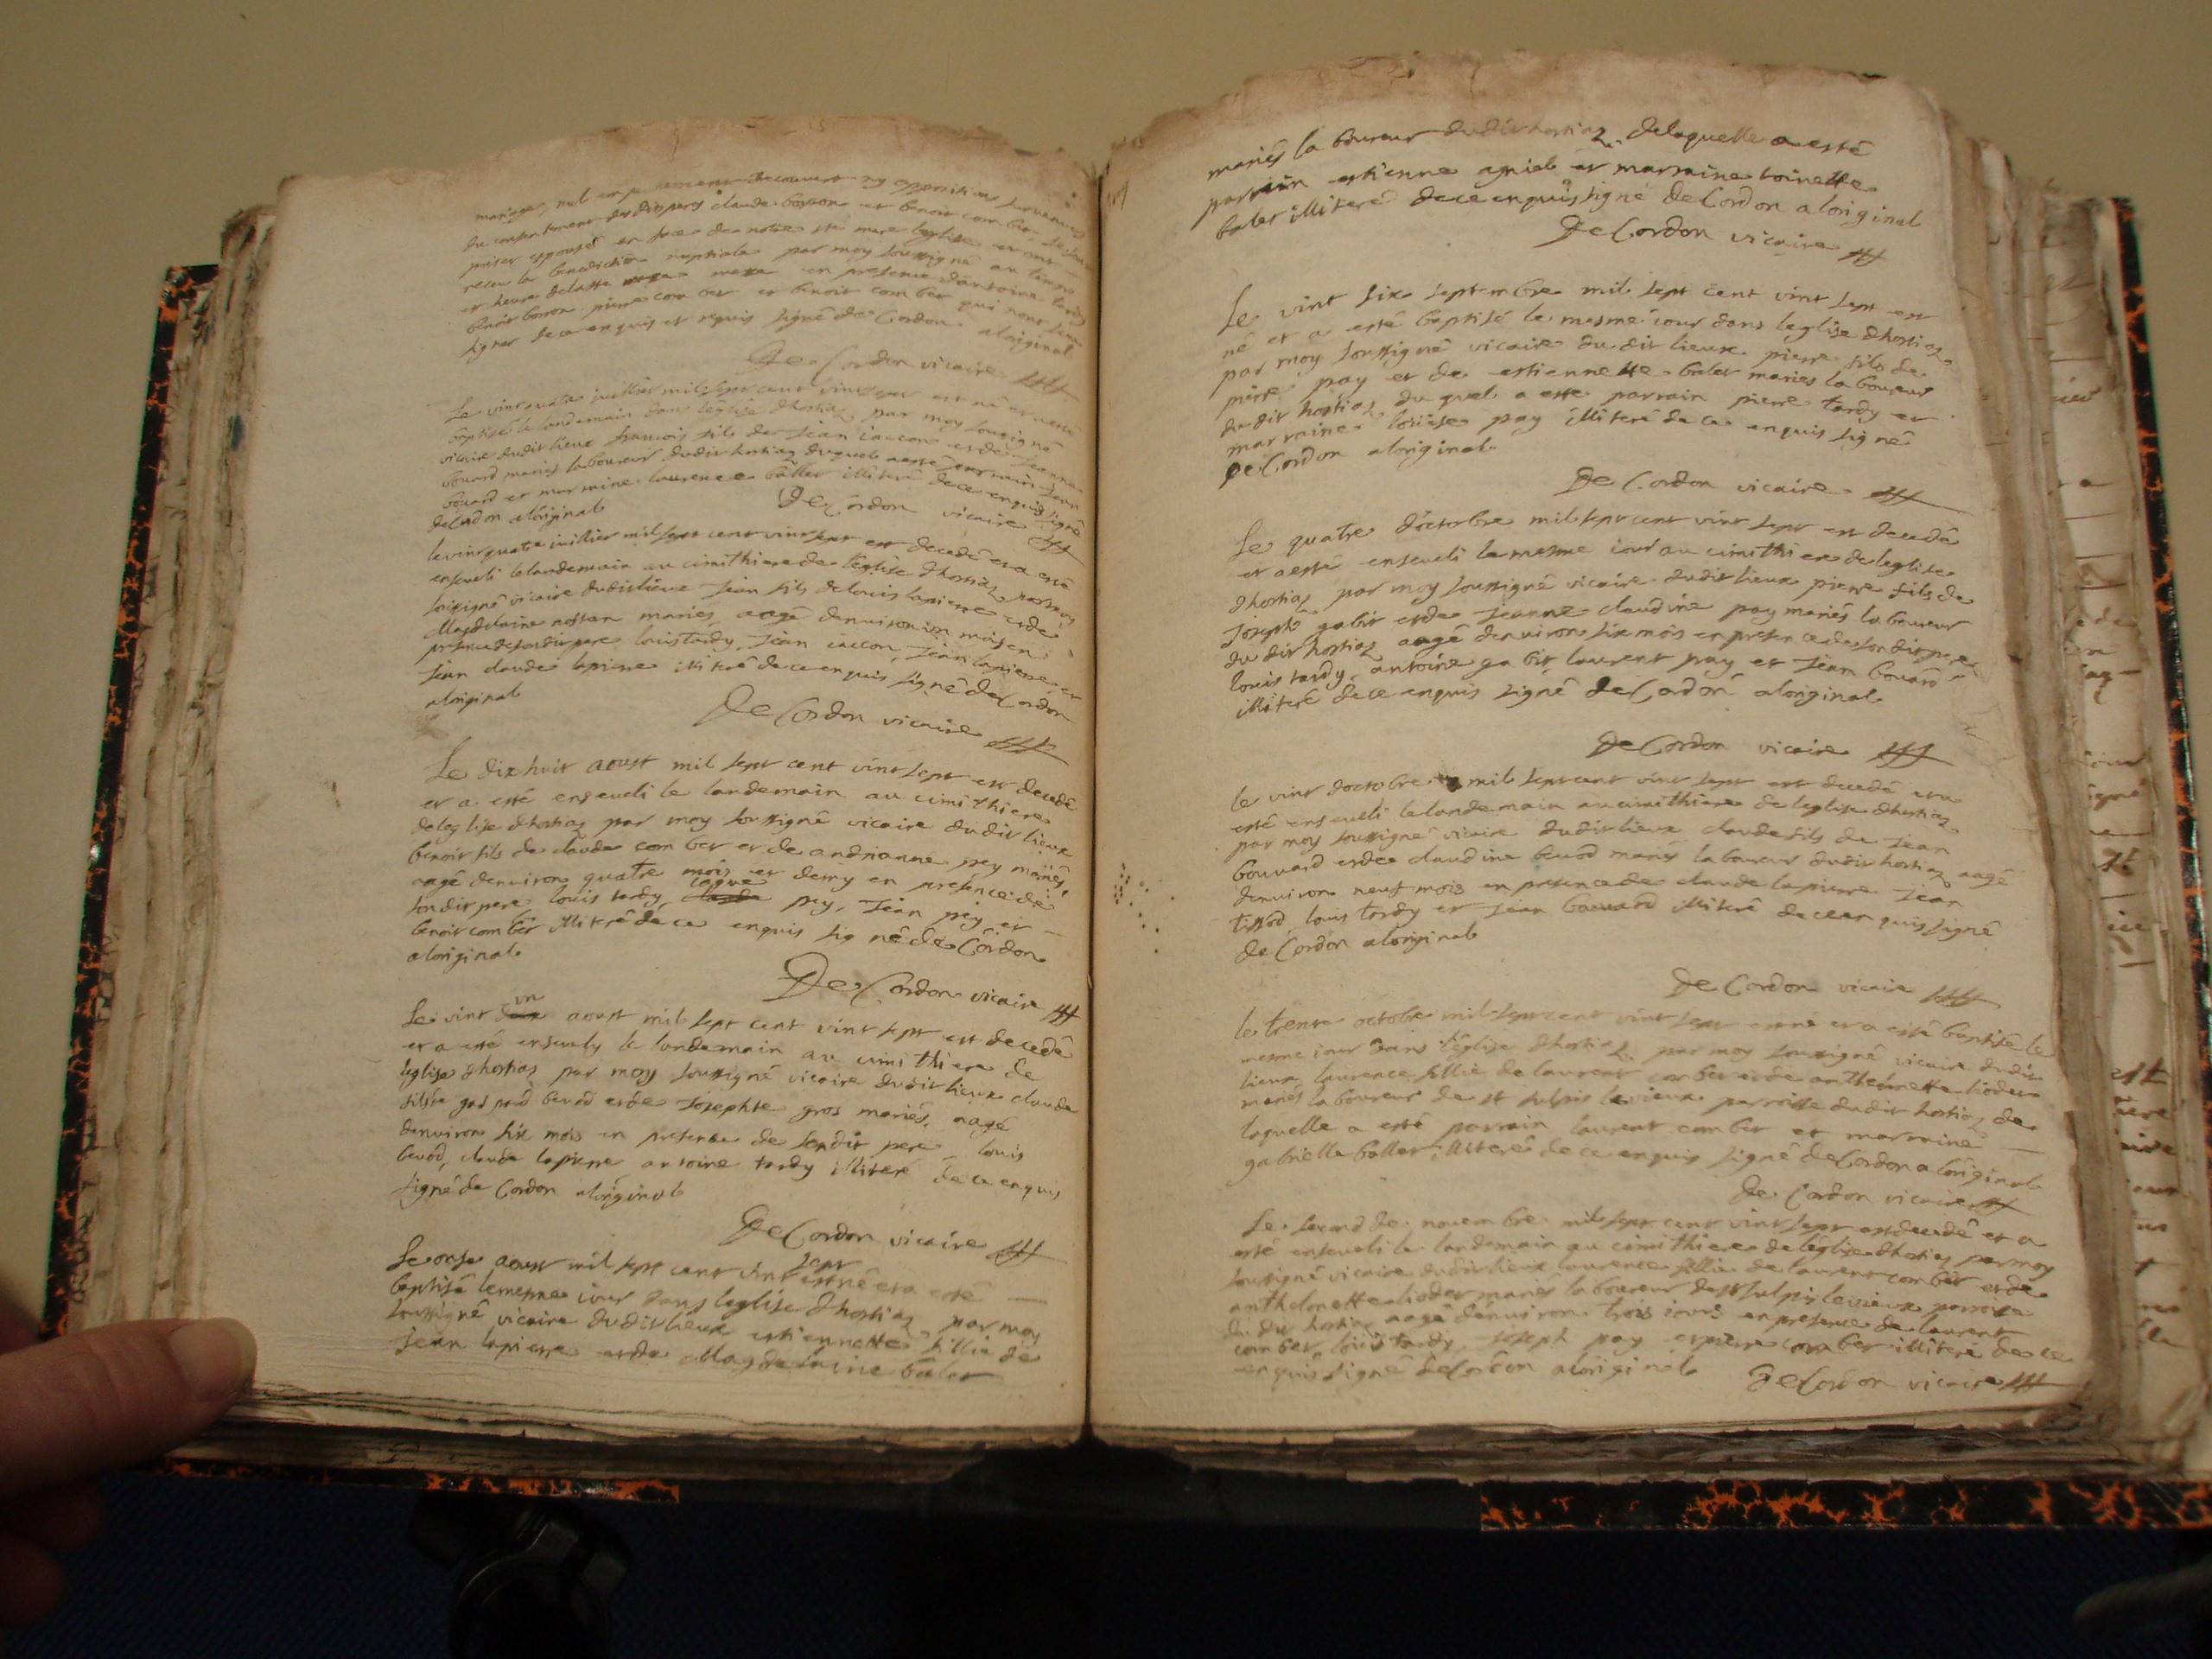 mariage, nul empechement decouvert ny opposition survenue
du consentement des dits pars claude borron et benoit comber
privez espousés en face de notre ste mere leglise et ont
receu la benediction nuptiale par moy soussigné au temps
et heure de la ste messe en presence d'antoine tardy
benoit borron pierre comber et benoit comber qui nont sceu
signer de ce enquis et requis signé de Cordon aloriginal
De Cordon vicaire
Le vint quatre juillier mil sept cent vint sept est né et a esté
baptisé le landemain dans leglise dhostiaz par moy sousigné
vicaire dudit lieux francois fils de Jean iaccon et de Jeanne
bouard mariés laboureur dudit hostiaz duquel a esté parrain Jean
bouard et marraine laurence baller illiteré de ce enquis signé
de Cordon aloriginal
De Cordon vicaire
le vint quatre juillier mil sept cent vint sept est decedé et a esté
enseveli le landemain au cimithiere de leglise dhostiaz par moy
soisigné vicaire dudit lieux Jean fils de louis lapierre et de
Magdelaine mariés, aagé denviron un mois en
presence de son dit pere louis tardy, Jean iaccon, Jean lapierre et
Jean claude lapierre illiteré de ce enquis signé de Cordon
aloriginal
De Cordon vicaire
Le dix huit aoust mil sept cent vint sept est decedé
et a esté enseveli le landemain au cimithiere
de leglise dhostiaz par moy soussigné vicaire dudit lieux
benoit fils de claude comber et de andrianne pey mariés,
aagé denviron quatre mois et demy en presence de
son dit pere louis tardy, pey, Jean pey et
benoit comber illiteré de ce enquis signé de Cordon
aloriginal
De Cordon vicaire
Le vint un aoust mil sept cent vint sept est decedé
et a esté ensevely le landemain au cimithiere de
leglise dhostiaz par moy soussigné vicaire dudit lieux claude
fils de gaspard bevod et de Josephte gros mariés, aagé
denviron six mois en presence de son dit pere, louis
bevod, claude lapierre antoine tardy illiteré de ce enquis
signé de Cordon aloriginal
De Cordon vicaire
Le onse aoust mil sept cent vint sept est né et a esté
baptisé le mesme iour dans leglise dhostiaz par moy
soussigné vicaire dudit lieux estiennette fillie de
Jean lapierre et de Magdelaine baler
mariés laboureur dudit hostiaz de laquelle a esté
parrain estienne amiel et marraine toinette
baler illiteré de ce enquis signé de Cordon aloriginal
De Cordon vicaire
Le vint six septembre mil sept cent vint sept est
né et a esté baptisé le mesme iour dans leglise dhostiaz
par moy soussigné vicaire du dit lieux pierre fils de
pierre pay et de estiennette baler mariés laboureur
du dit hostiaz du quel a esté parrain pierre tardy et
marraine louise pay illiteré de ce enquis signé
De Cordon aloriginal
De Cordon vicaire
Le quatre doctobre mil sept cent vint sept est decedé
et a esté enseveli le mesme iour au cimithiere de leglise
dhostiaz par moy soussigné vicaire dudit lieux pierre fils de
Joseph gabit et de Jeanne claudine pay mariés laboureur
du dit hostiaz aagé denviron six mois en presence de son dit pere
louis tardy, antoine gabit, laurent pay et Jean bouard
illiteré de ce enquis signé de Cordon aloriginal
De Cordon vicaire
le vint doctobre mil sept cent vint sept est decedé et a
esté enseveli le landemain au cimithiere de leglise dhostiaz
par moy soussigné vicaire dudit lieux claude fils de Jean
bouvard et de claudine bevod mariés laboureur dudit hostiaz aagé
denviron neuf mois en presence de claude lapierre Jean
tissod, louis tardy et Jean bouvard illiteré de ce enquis signé
de Cordon aloriginal
De Cordon vicaire
le trente octobre mil sept cent vint sept est né et a esté baptisé le
mesme iour dans leglise dhostiaz par moy soussigné vicaire dudit
lieux laurence fillie de laurent comber et de anthelmette lioder
mariés laboureur de st sulpis le vieux parroisse dudit hostiaz de
laquelle a esté parrain laurent comber et marraine
gabrielle baller illiteré de ce enquis signé de Cordon aloriginal
De Cordon vicaire
Le second de novembre mil sept cent vint sept est decedé et a
esté enseveli le landemain au cimithiere de leglise dhostiaz par moy
soussigné vicaire dudit lieux laurence fillie de laurent comber et de
anthelmette lioder mariés laboureur de st sulpis le vieux parroisse
du dit hostiaz aagé denviron trois iours en presence de laurent
comber, louis tardy, Joseph pay et pierre comber illiteré de ce
enquis signé de Cordon aloriginal
De Cordon vicaire